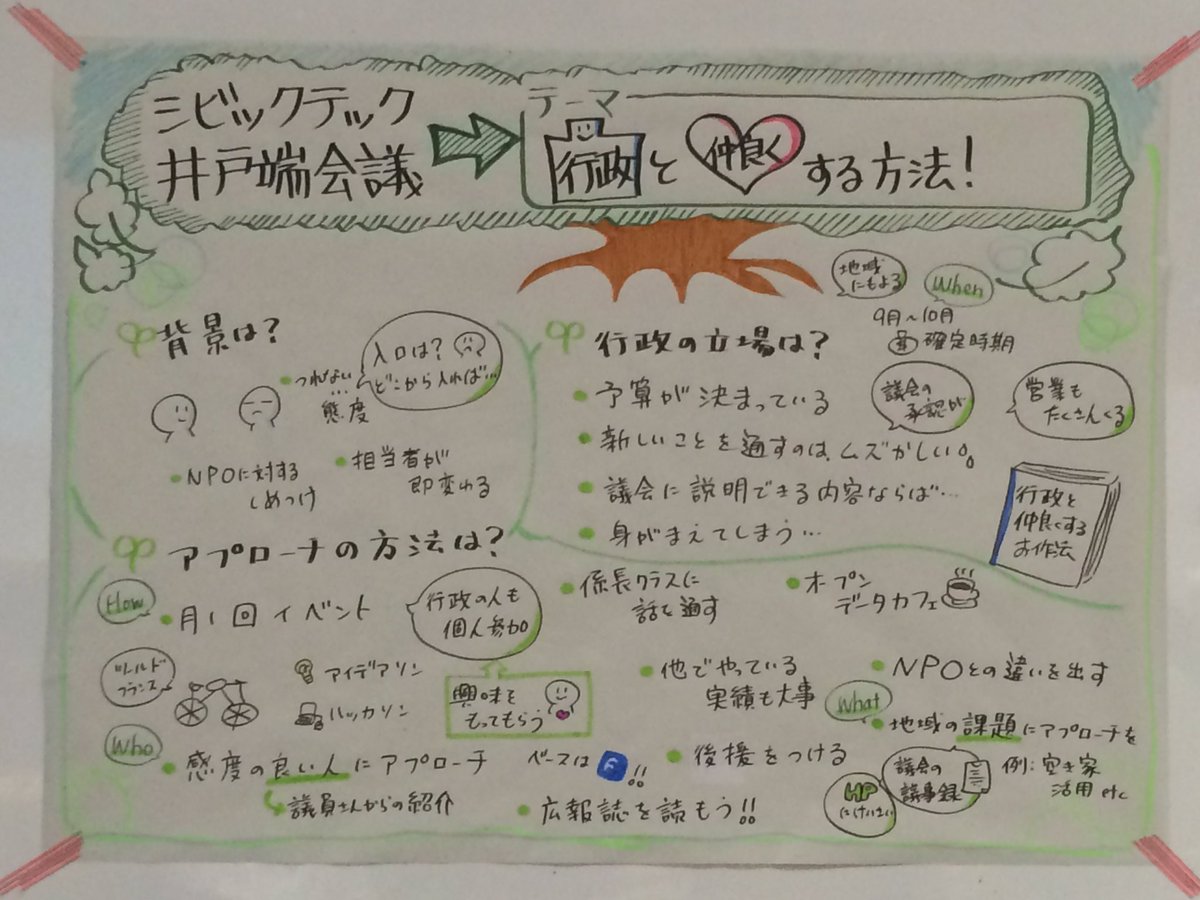 シビックテック
井戸端会議
テーマ
行政と仲良くする方法!
地域
にもよる
When
9月〜10月
確定時期
背景は?
つれない…
態度
入口は?
どこから入れば…
NPOに対する
しめつけ
担当者が
即変わる
行政の立場は?
予算が決まっている
議会の
承認が
営業も
たくさんくる
新しいことを通すのは、ムズかしい。
議会に説明できる内容ならば…
身がまえてしまう…
行政と
仲良くする
お作法
アプローチの方法は?
How
月1回イベント
行政の人も
個人参加
ツールド
フランス
アイデアソン
ハッカソン
興味を
もってもらう
係長クラスに
話を通す
オープン
データカフェ
他でやっている
実績も大事
NPOとの違いを出す
What
地域の課題にアプローチを
例:空き家
活用 etc
議会の
議事録
HP
にけいさい
Who
感度の良い人にアプローチ
議員さんからの紹介
ベースは f !!
後援をつける
広報誌を読もう!!